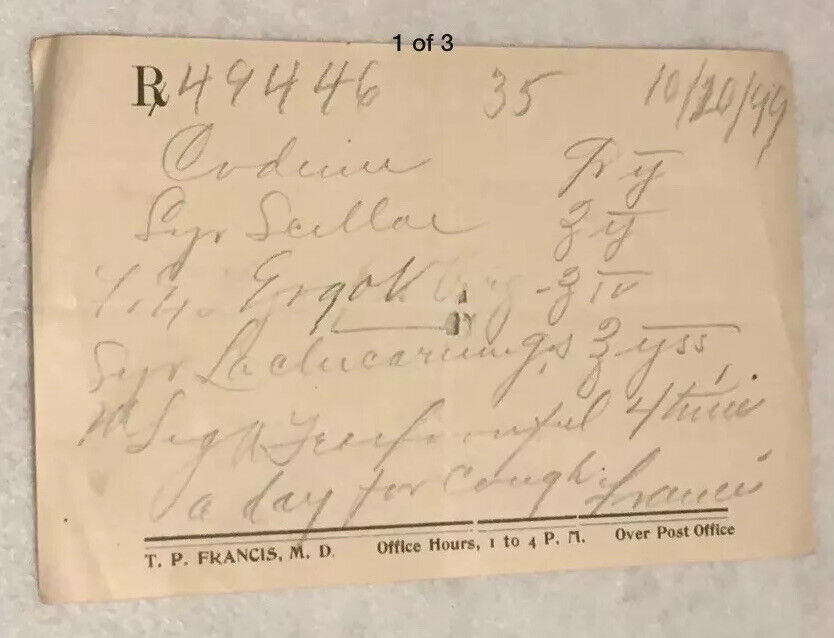 1 of 3
R 49446 35 10/20/99
Codeine Gr ij
Syr Scillae ʒ ij
Ergot ʒ iv
Syr Lactucarium q.s ℥ ijss
M Sig A Teaspoonful 4 times
a day for cough. Francis
T. P. FRANCIS, M. D. Office Hours, 1 to 4 P. M. Over Post Office